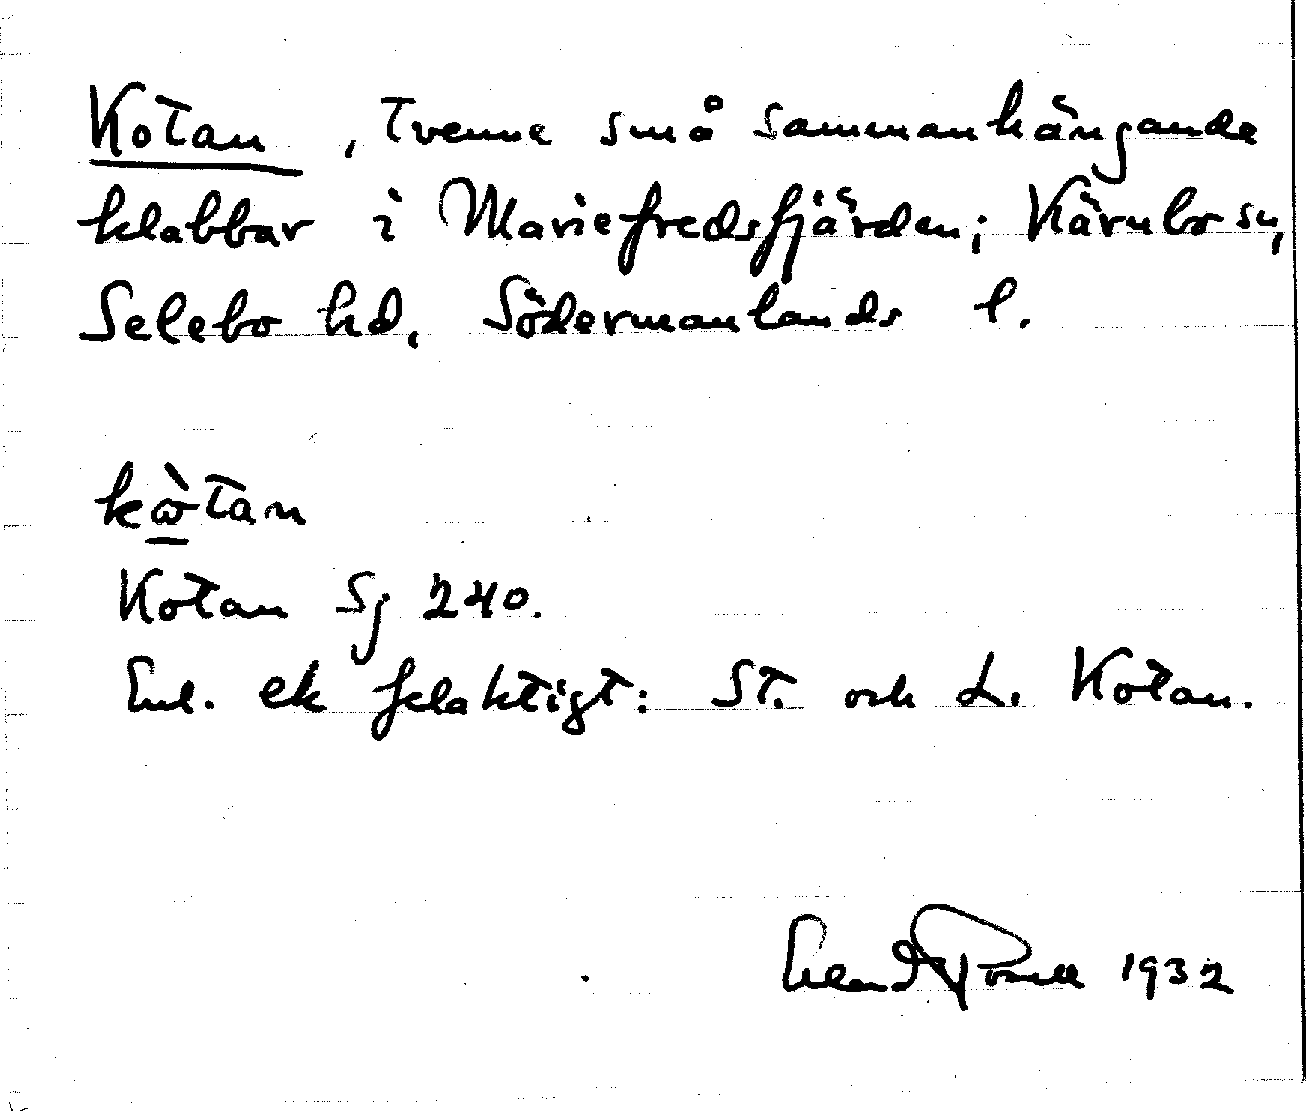 Kotan, tvenne små sammanhängande
klabbar i Mariefredsfjärden; Kärnbo sn,
Selebo hd, Södermanlands l.
kὼtan
Kotan Sj 240.
Enl. ek felaktigt: St. och L. Kotan.
1932